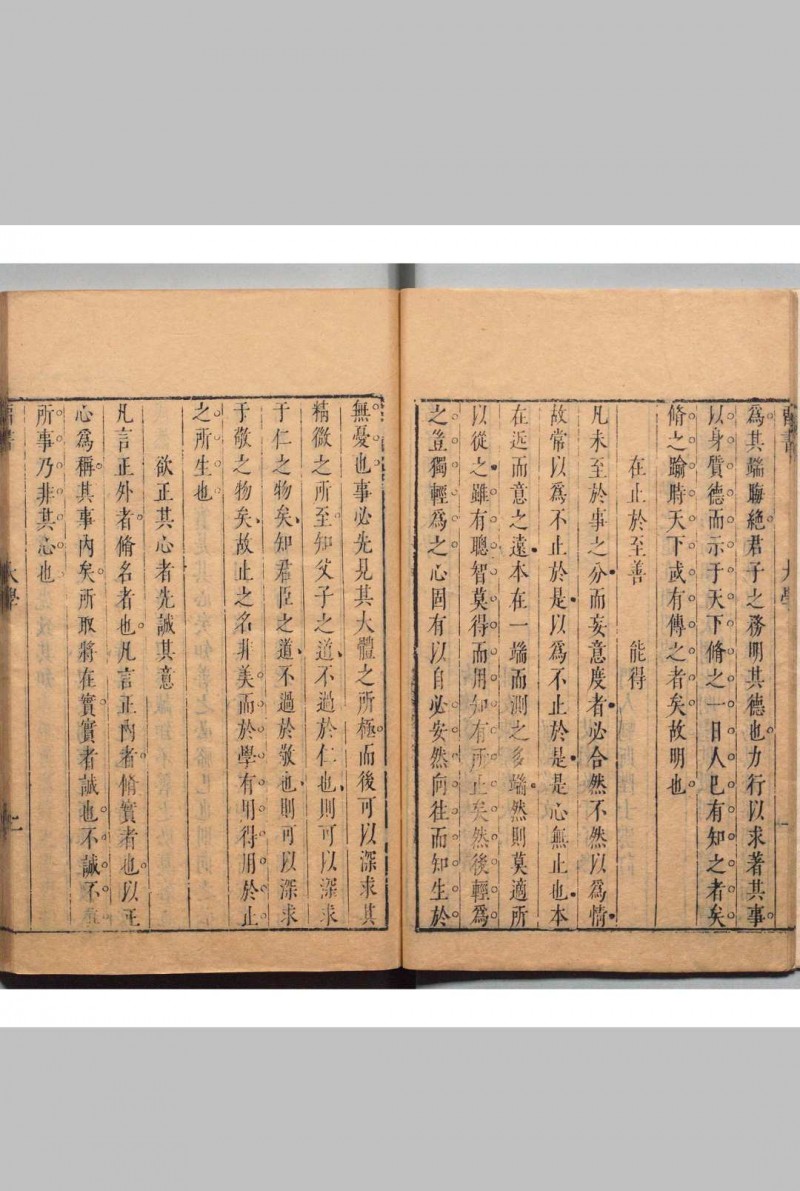 爲其端晦絶君子之務明其德也力行以求著其事
以身質德而示于天下脩之一日人巳有知之者矣
脩之踰時天下或有傳之者矣故明也
在止於至善　能得
凡未至於事之分而妄意度者必合然不然以爲情
故常以爲不止於是以爲不止於是是心無止也本
在近而意之遠本在一端而測之多端然則莫適所
以從之雖有聰智莫得而用知有所止矣然後輕爲
之豈獨輕爲之心固有以自必安然向往而知生於
大學
無憂也事必先見其大體之所極而後可以深求其
精微之所至知父子之道不過於仁也則可以深求
于仁之物矣知君臣之道不過於敬也則可以深求
于敬之物矣故止之名非美而於學有用得用於止
之所生也
欲正其心者先誠其意
凡言正外者脩名者也凡言正內者脩實者也以正
心爲稱其事內矣所取將在實實者誠也不誠不
所事乃非其心也
大學